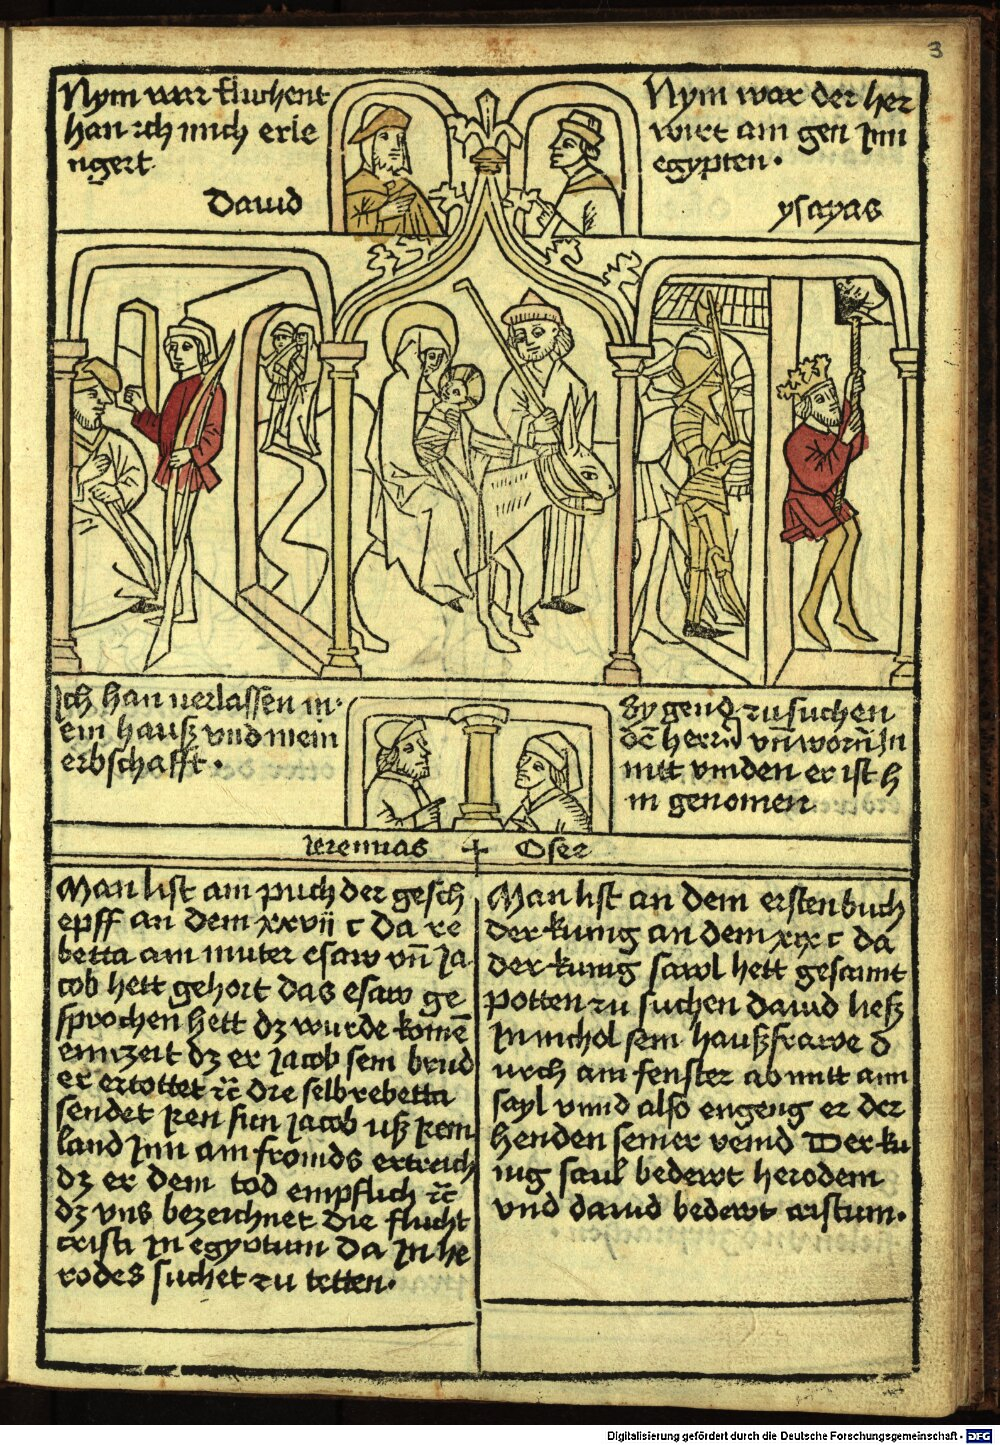 3
Nym war fluchent
han ich mich erle
ngert
David
Nym war der her
wirt am gen Inn
egypten.
ysayas
Ich han verlassen m
ein hauß vnd mein
erbschafft.
Sy gend zu suchen
dē herrn vn̄ worn̄ In
nitt vinden er ist h
in genomen
ieremias + Osee
Man list am puch der gesch
epff an dem xxvii c da re
betta am muter esaw vn̄ Ja
cob hett gehort das esaw ge
sprochen hett dz wurde komē
ein zeit dz er Jacob sein brud
er ertottet ⁊c̄ die selb rebetta
sendet iren sun Jacob uß irem
land Inn am fromds ertreich
dz er dem tod empflich ⁊c̄
dz vns bezeichnet die flucht
cristi In egyptum da In he
rodes suchet zu tetten.
Man list an dem ersten buch
der kunig an dem xix c da
der kunig sawl hett gesamt
potten zu suchen david ließ
In michol sein haußfrawe d
urch am fenster ab mitt aim
sayl vnnd also engeng er der
henden seiner veind Der ku
nig saul bedewt herodem
vnd david bedewt cristum.
Digitalisierung gefördert durch die Deutsche Forschungsgemeinschaft - DFG